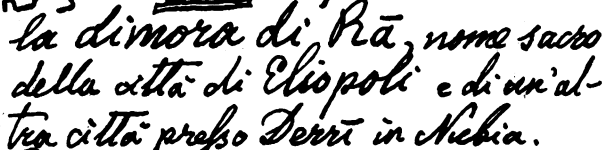 la dimora di Rā, nome sacro
della città di Eliopoli e di un'al-
tra città presso Derri in Nubia.